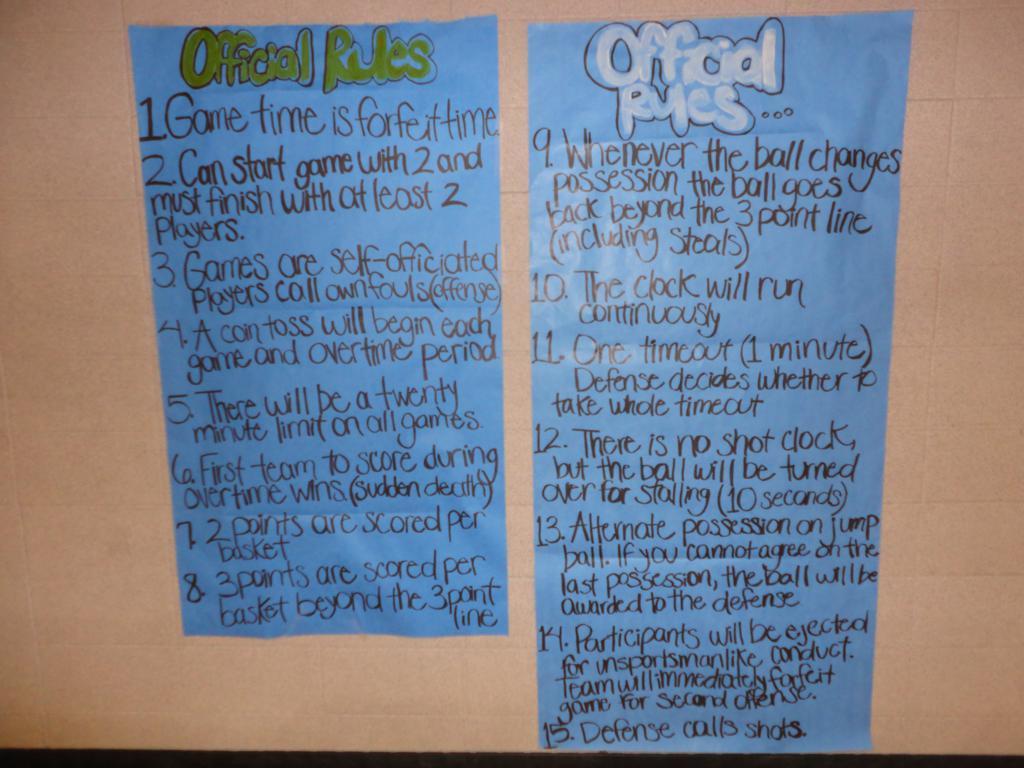 Official Rules
1. Game time is forfeit time.
2. Can start game with 2 and
must finish with at least 2
Players.
3. Games are self-officiated
Players call own fouls (offense)
4. A coin toss will begin each
game and overtime period
5. There will be a twenty
minute limit on all games.
6. First team to score during
overtime wins. (sudden death)
7. 2 points are scored per
basket
8. 3 points are scored per
basket beyond the 3 point
line
Official
Rules...
9. Whenever the ball changes
possession the ball goes
back beyond the 3 point line
(including steals)
10. The clock will run
continuously
11. One timeout (1 minute)
Defense decides whether to
take whole timeout
12. There is no shot clock,
but the ball will be turned
over for stalling (10 seconds)
13. Alternate possession on jump
ball. If you cannot agree on the
last possession, the ball will be
awarded to the defense
14. Participants will be ejected
for unsportsmanlike conduct.
Team will immediately forfeit
game for second offense.
15. Defense calls shots.